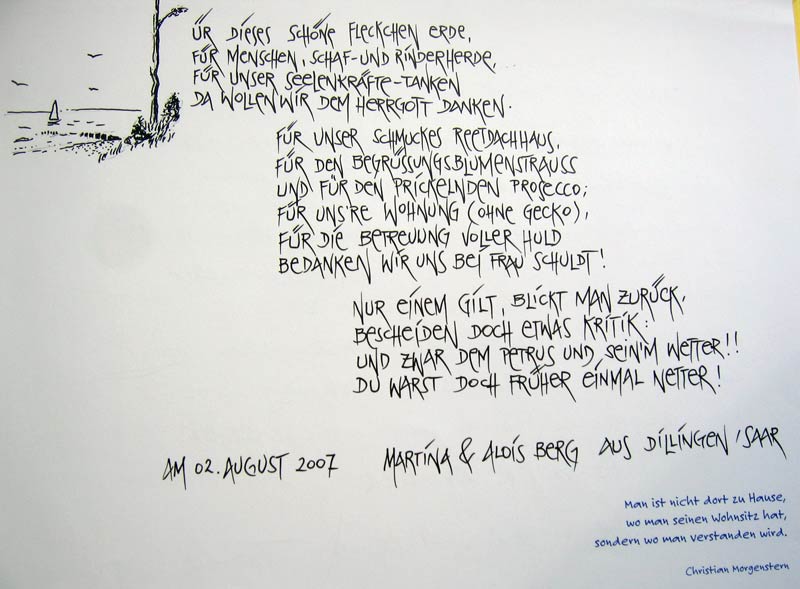 ÜR DIESES SCHÖNE FLECKCHEN ERDE,
FÜR MENSCHEN, SCHAF- UND RINDERHERDE,
FÜR UNSER SEELENKRÄFTE-TANKEN
DA WOLLEN WIR DEM HERRGOTT DANKEN.
FÜR UNSER SCHMUCKES REETDACHHAUS,
FÜR DEN BEGRÜSSUNGSBLUMENSTRAUSS
UND FÜR DEN PRICKELNDEN PROSECCO;
FÜR UNS'RE WOHNUNG (OHNE GECKO),
FÜR DIE BETREUUNG VOLLER HULD
BEDANKEN WIR UNS BEI FRAU SCHULDT!
NUR EINEM GILT, BLICKT MAN ZURÜCK,
BESCHEIDEN DOCH ETWAS KRITIK:
UND ZWAR DEM PETRUS UND SEIN'M WETTER!!
DU WARST DOCH FRÜHER EINMAL NETTER!
AM 02. AUGUST 2007 MARTINA & ALOIS BERG AUS DILLINGEN/SAAR
Man ist nicht dort zu Hause,
wo man seinen Wohnsitz hat,
sondern wo man verstanden wird.
Christian Morgenstern